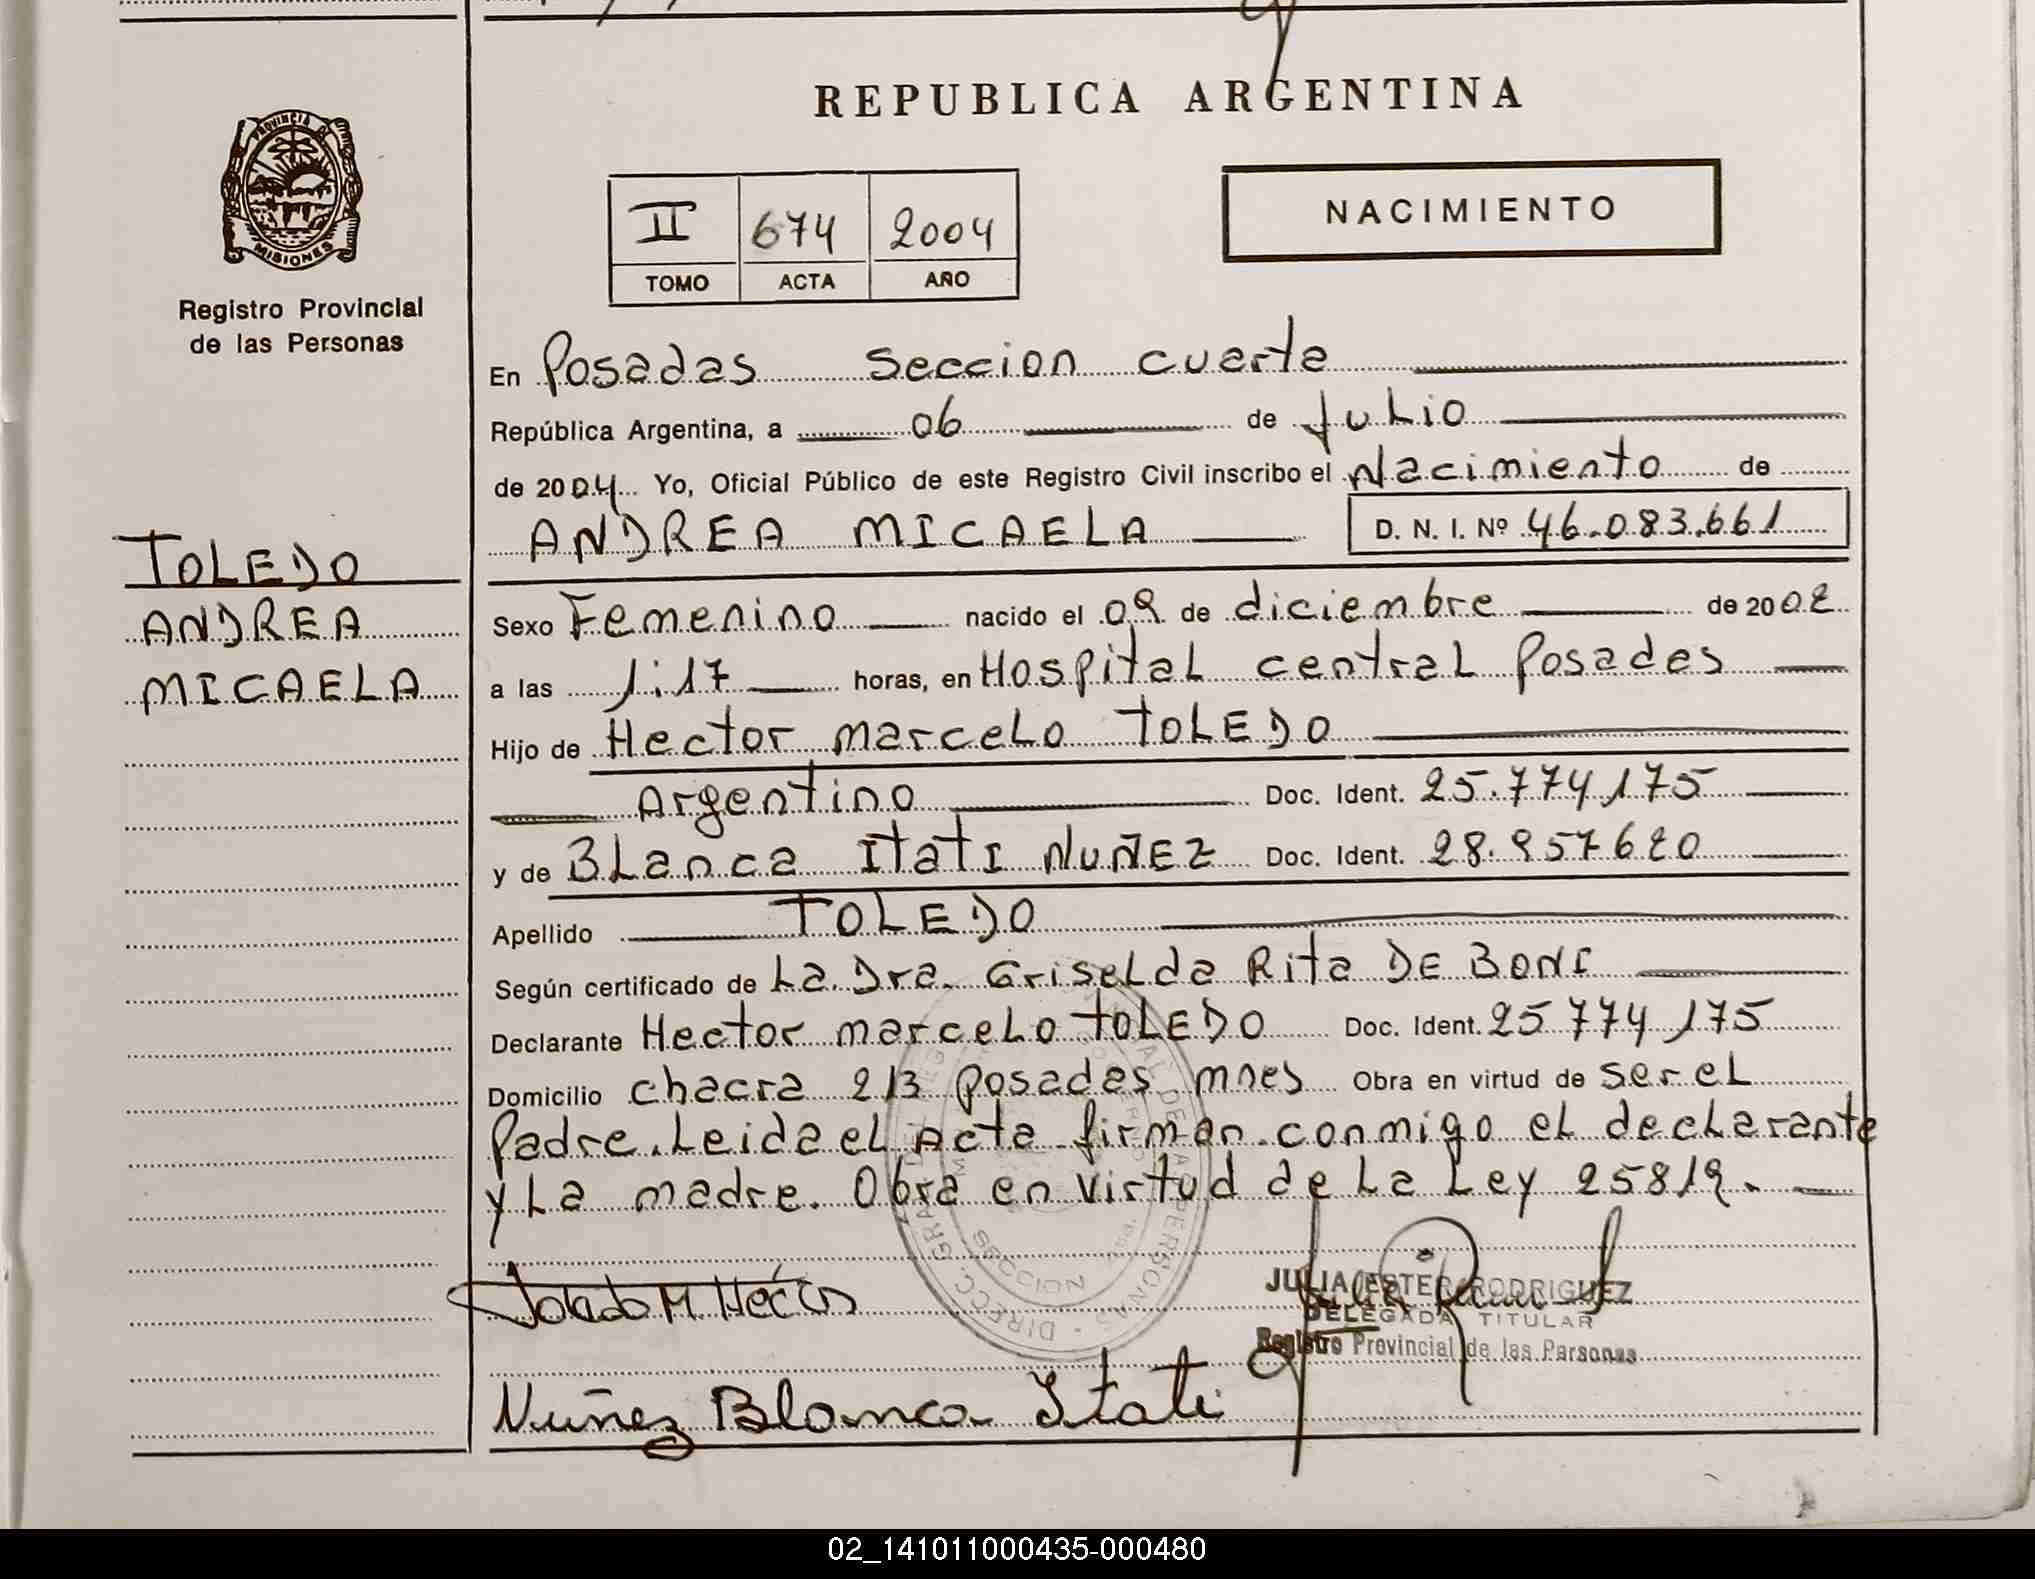 REPUBLICA ARGENTINA
PROVINCIA DE
MISIONES
Registro Provincial
de las Personas
II 674 2004
TOMO ACTA AÑO
NACIMIENTO
En Posadas Seccion cuarta
República Argentina, a 06 de Julio
de 2004 Yo, Oficial Público de este Registro Civil inscribo el Nacimiento de
ANDREA MICAELA D. N. I. Nº 46.083.661
TOLEDO
ANDREA
MICAELA
Sexo Femenino nacido el 09 de diciembre de 2002
a las 1:17 horas, en Hospital central Posadas
Hijo de Hector marcelo TOLEDO
Argentino Doc. Ident. 25.774.175
y de Blanca Itati NUÑEZ Doc. Ident. 28.957620
Apellido TOLEDO
Según certificado de La Dra. Griselda Rita DE BONI
Declarante Hector marcelo TOLEDO Doc. Ident. 25 774 175
Domicilio chacra 213 posadas mnes Obra en virtud de ser el
Padre. Leida el Acta firman conmigo el declarante
y La madre. Obra en virtud de La Ley 25819.
Toledo M Héctor
JULIA ESTER RODRIGUEZ
DELEGADA TITULAR
Registro Provincial de las Personas
Nuñez Blanca Itati
02_141011000435-000480